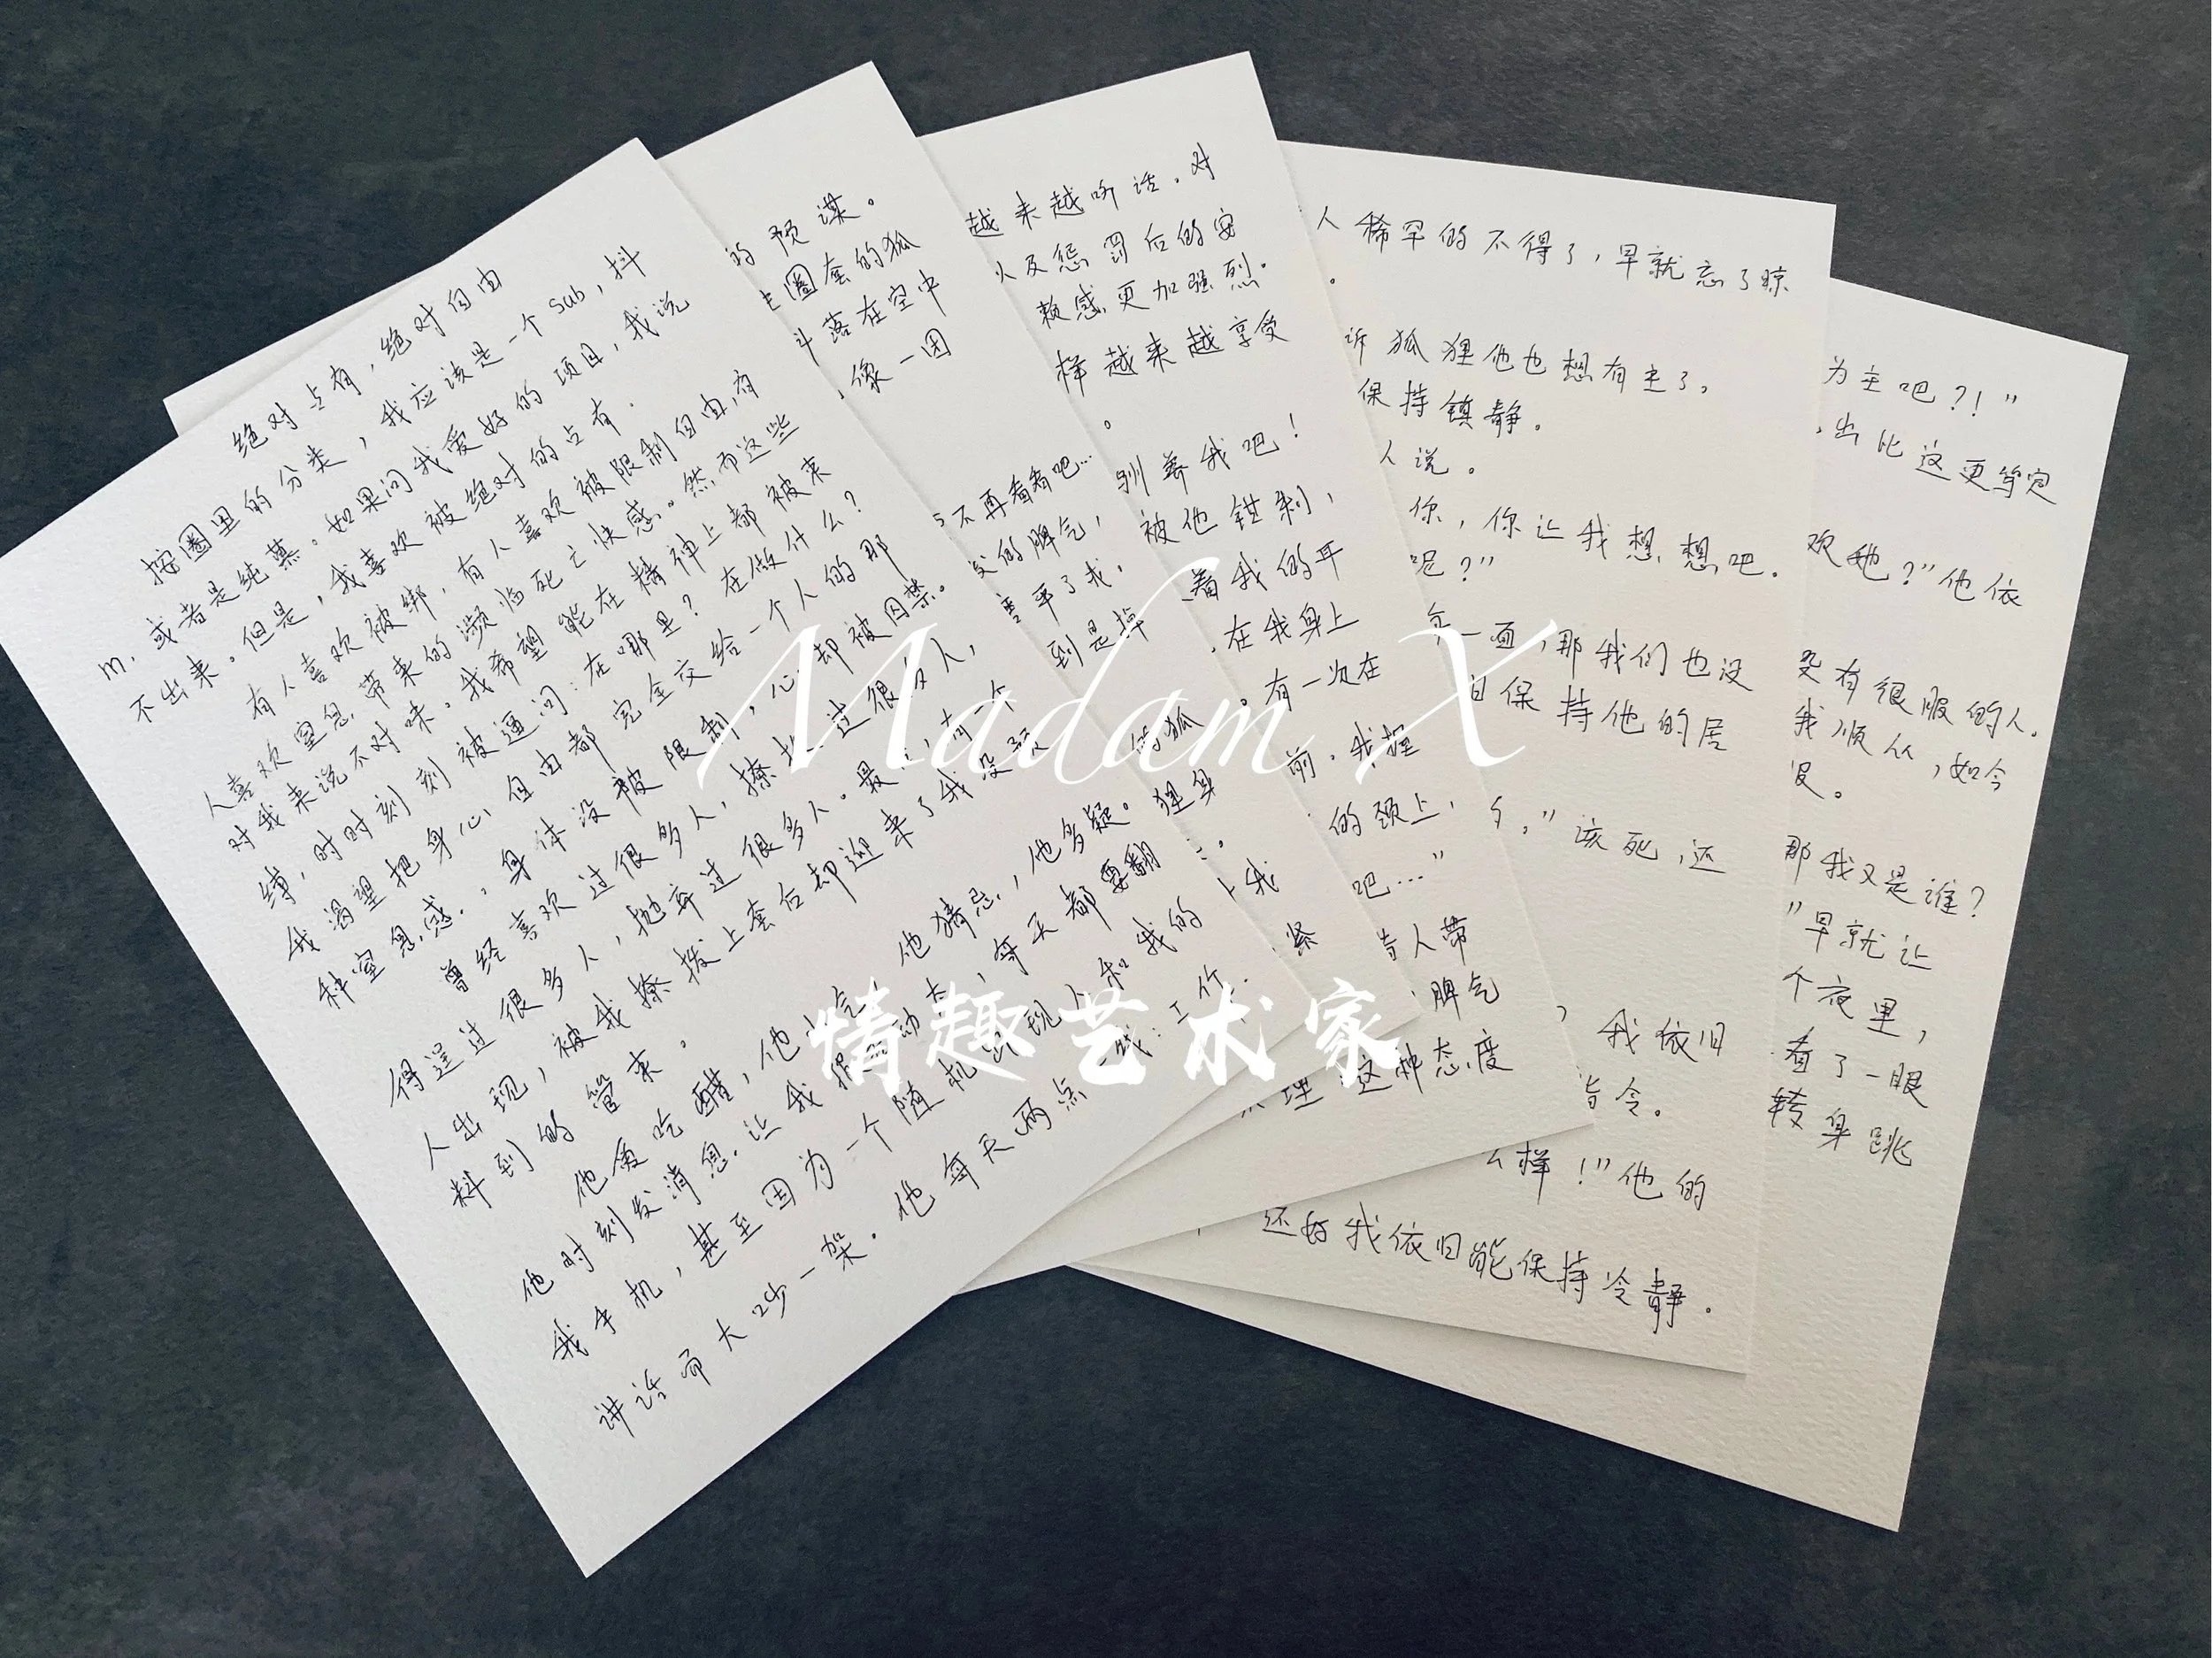 绝对占有，绝对自由
按圈里的分类，我应该是一个sub，抖
m，或者是纯慕。如果问我爱好的项目，我说
不出来。但是，我喜欢被绝对的占有。
有人喜欢被绑，有人喜欢被限制自由，有
人喜欢窒息带来的濒临死亡快感。然而这些
对我来说不对味。我希望能在精神上都被束
缚，时时刻刻被逼问：在哪里？在做什么？
我渴望把身心自由都完全交给一个人的那
种窒息感。身体没被限制，心却被囚禁。
曾经喜欢过很多人，撩拨过很多人，
得逞过很多人，抛弃过很多人。最后，有一个
人出现，被我撩拨上套后却迎来了我没预
料到的管束。
他爱吃醋，他小气，他猜忌，他多疑。
他时刻发消息让我报动态，每天都要翻
我手机，甚至因为一个随机出现人和我的
讲话而大吵一架。他每天两点一线：工作
的预谋。
圈套的狐
落在空中
像一团
不再看看吧…
的脾气，
平了我，
到是掉
的狐
狸身
上我
越来越听话。对
以及惩罚后的安
赖感更加强烈。
样越来越享受
驯养我吧！
被他钳制，
着我的耳
在我身上
有一次在
前，我握
的颈上，
吧…"
人带
脾气
理这种态度
紧
人稀罕的不得了，早就忘了掠
诉狐狸他也想有主了，
保持镇静。
人说。
你，你让我想想吧。
呢？"
一面，那我们也没
且保持他的居
"该死，还
我依旧
指令。
么样！"他的
还好我依旧能保持冷静。
为主吧？！"
出比这更笃定
欢她？"他依
没有很服的人。
我顺从，如今
没。
那我又是谁？
"早就让
个夜里，
看了一眼
转身跳
Madam X
情趣艺术家